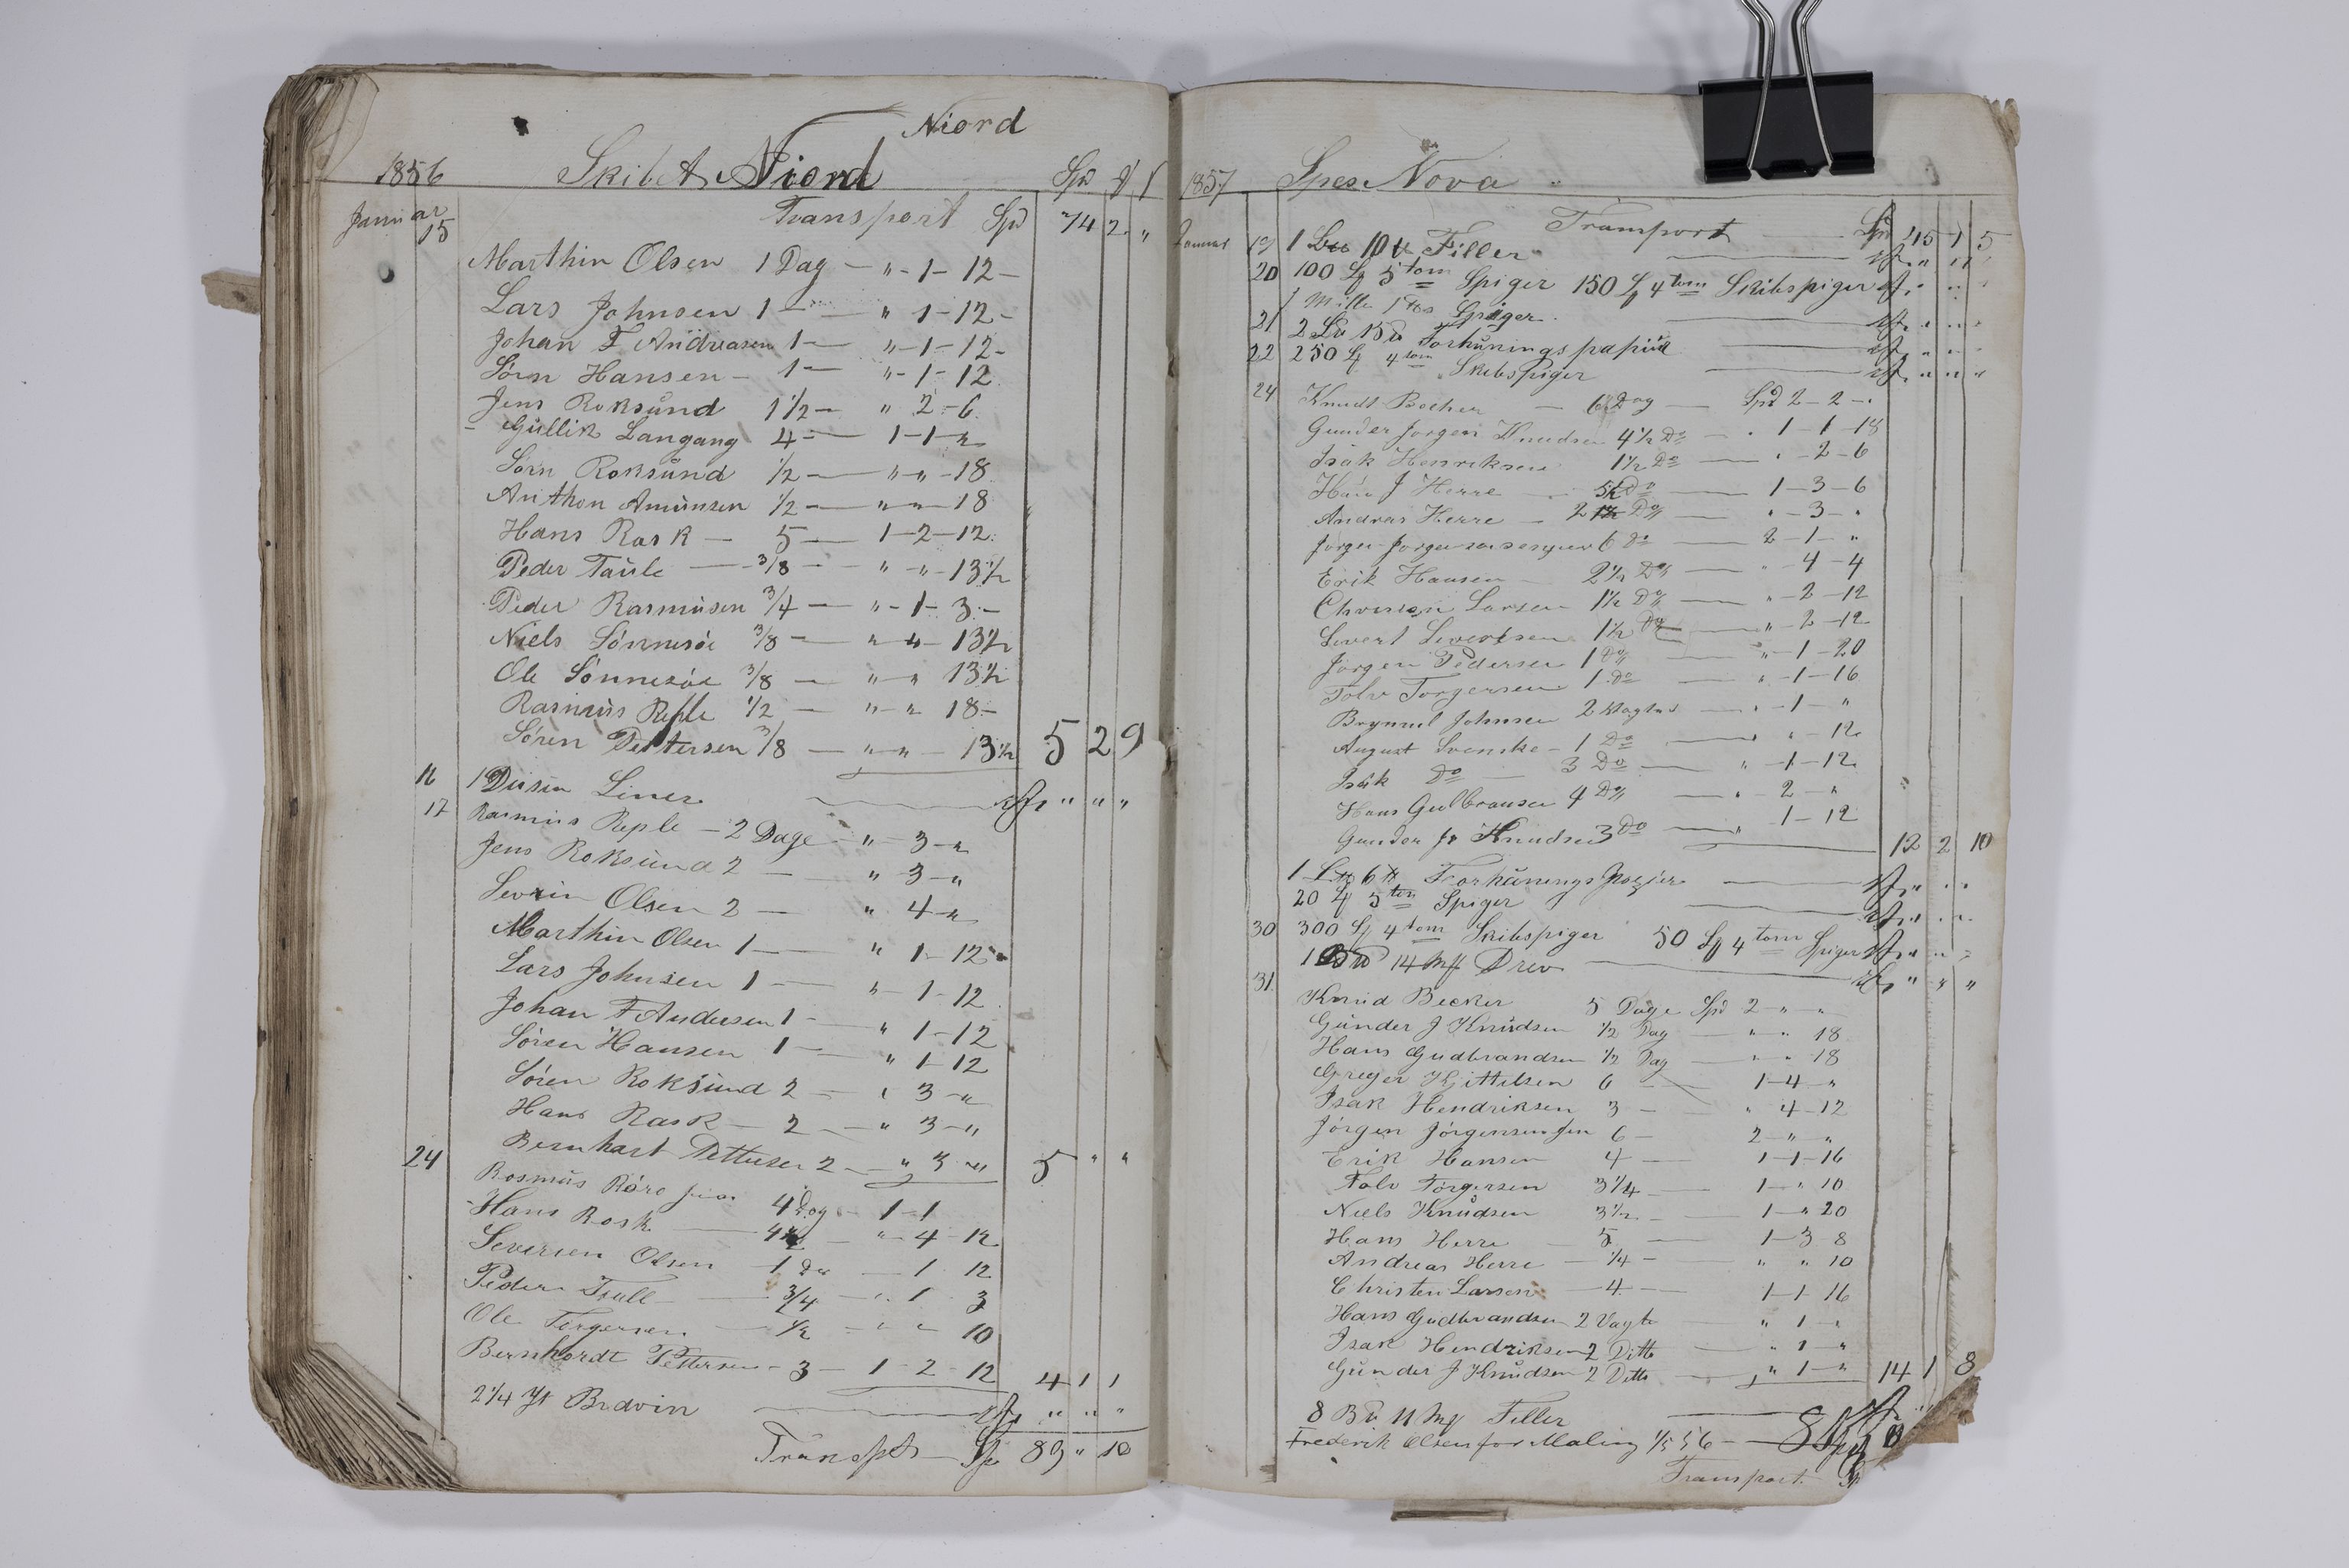 Niord
1856 Skibet Niord Spd
Januar 15 Transport Spd 74 2 "
Marthin Olsen 1 Dag — " - 1 - 12 -
Lars Johnsen 1 — " 1 - 12 -
Johan F Andreasen 1 — " - 1 - 12 -
Sörn Hansen - 1 — " - 1 - 12
Jens Roksund 1 1/2 — " 2 - 6
Gullik Langang 4 — 1 - 1 - "
Sörn Roksund 1/2 — " " - 18
Anthon Amunsen 1/2 — " " 18
Hans Rask — 5 — 1 - 2 - 12
Peder Taule — 3/8 — " - " - 13 1/2
Peder Rasmusen 3/4 — " - 1 - 3 -
Niels Sönnesöe 3/8 — " " - 13 1/2
Ole Sönnesöe 3/8 — " - " 13 1/2
Rasmus Reple 1/2 — " - " 18 -
Sören Pettersen 3/8 — " " - 13 1/2 5 2 9
16 1 Dusin Liner " " "
17 Rasmus Reple - 2 Dage - " - 3 - "
Jens Roksund 2 — " 3 - "
Sevrin Olsen 2 — " 4 - "
Marthin Olsen 1 — " 1 - 12
Lars Johnsen 1 — " - 1 - 12
Johan F Andersen 1 — " 1 - 12
Sören Hansen 1 — " 1 - 12
Sören Roksund 2 — " 3 - "
Hans Rask — 2 — " 3 - "
Bernhart Pettersen 2 — " 3 - " 5 " "
24 Rasmus 4 Dag - 1 - 1
Hans Rosk — " - 4 - 12
Seversen Olsen 1 Do — 1 12
Peder — 3/4 — " 1 3
Ole Torgersen — 1/2 - " " 10
Bernhordt Pettersen - 3 — 1 - 2 - 12 4 1 1
2 1/4 " " "
Transpt 89 " 10
1857 Spes Nova
Januar 19 Transport Spd 45 1 5
1 10 Filler
20 100 5 tom Spiger 150 4 tom Skibspiger
1 Mille Spiger
21 2 15 Forhünings papiir
22 250 4 tom Skibspiger
24 Knudt Becker — 6 Dag — Spd 2 - 2 - "
Gunder Jorgen Knudsen 4 1/2 Do — 1 - 1 - 18
Isak Henriksen 1 1/2 Do — " - 2 - 6
Hans J Herre Do — 1 - 3 - 6
Andreas Herre — 2 Do — " - 3 - "
Jorgen 6 Do — 2 - 1 - "
Erik Hansen 2 1/2 Do — " - 4 - 4
Larsen 1 1/2 Do — " - 2 - 12
Severt Severtsen 1 1/2 Do — " - 2 - 12
Jörgen Pedersen 1 Do — " - 1 - 20
Tolv Torgersen 1 Do — " - 1 - 16
Johnsen 2 — " - 1 - "
August Svenske - 1 Do — " " - 12
Isak Do — 3 Do — " - 1 - 12
Hans Gulbransen 4 Do — " 2 - "
Gunder Jr Knudsen 3 Do — " 1 - 12 12 2 10
1 6 Forhünings Papier
20 5 tom Spiger
30 300 4 tom Skibspiger 50 4 tom Spiger
1 14 Drev
31 Knud Becker 5 Dage Spd 2 - " - "
Günder J Knudsen 1/2 Dag — " " 18
Hans Gudbrandsen 1/2 Dag — " " 18
Greger Kjittilsen 6 — 1 - 4 - "
Isak Hendriksen 3 — " 4 - 12
Jörgen Jörgensen 6 — 2 - " "
Erik Hansen 4 — 1 - 1 - 16
Tolv Törgersen 3 1/4 — 1 - " 10
Niels Knudsen 3 1/2 — 1 - " 20
Hans Herre 5 — 1 - 3 8
Andreas Herre — 1/4 — " " 10
Christen Larsen — 4 — 1 - 1 - 16
Hans Gudbrandsen 2 Vagter " 1 - "
Isak Hendriksen 2 Ditto " 1 - "
Günder J Knudsen 2 Ditto — " 1 - " 14 1 8
8 11 Filler
Frederik Olsen for Maling 56
Transport